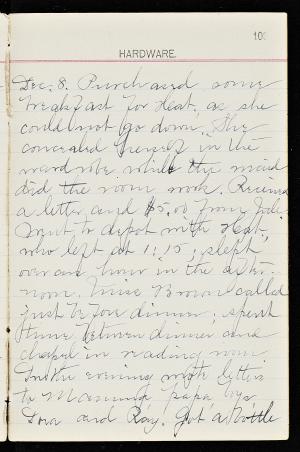 10
HARDWARE.
Dec. 8. Purchased some
breakfast for Heat, as she
could not go down. She
concealed herself in the
wardrobe while the maid
did the room work. Received
a letter and $5.00 from Juli.
Went to depot with Heat,
who left at 1:15; slept
over an hour in the after-
noon. Miss Brown called
just before dinner; spent
time between dinner and
chapel in reading room.
In the evening wrote letters
to Mamma, papa,
Dora and Ray. Got a bottle